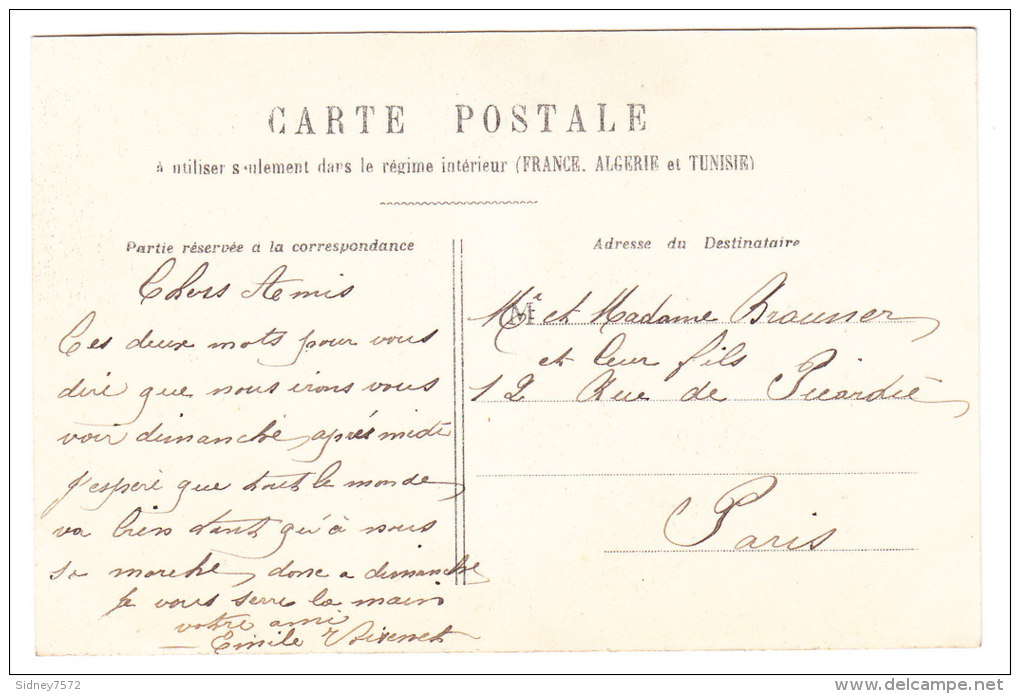 CARTE POSTALE
à utiliser seulement dans le régime intérieur (FRANCE, ALGERIE et TUNISIE)
Partie réservée à la correspondance
Chers Amis
Ces deux mots pour vous
dire que nous irons vous
voir dimanche après midi
J'espère que tout le monde
va bien tant qu'à nous
sa marche donc a dimanche
Je vous serre la main
votre ami
Emile
Adresse du Destinataire
Mr et Madame Brausser
et leur fils
12 Rue de Picardie
Paris
Sidney7572
delcampe.net